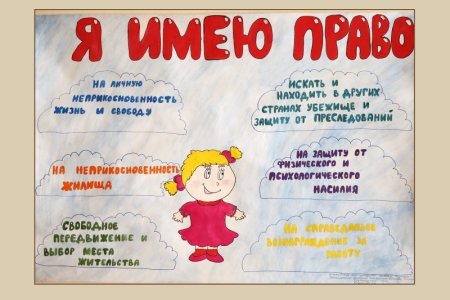 Я ИМЕЮ ПРАВО
НА ЛИЧНУЮ
НЕПРИКОСНОВЕННОСТЬ
ЖИЗНЬ И СВОБОДУ
НА НЕПРИКОСНОВЕННОСТЬ
ЖИЛИЩА
СВОБОДНОЕ
ПЕРЕДВИЖЕНИЕ И
ВЫБОР МЕСТА
ЖИТЕЛЬСТВА
ИСКАТЬ И
НАХОДИТЬ В ДРУГИХ
СТРАНАХ УБЕЖИЩЕ И
ЗАЩИТУ ОТ ПРЕСЛЕДОВАНИЙ
НА ЗАЩИТУ ОТ
ФИЗИЧЕСКОГО И
ПСИХОЛОГИЧЕСКОГО
НАСИЛИЯ
НА СПРАВЕДЛИВОЕ
ВОЗНАГРАЖДЕНИЕ ЗА
РАБОТУ